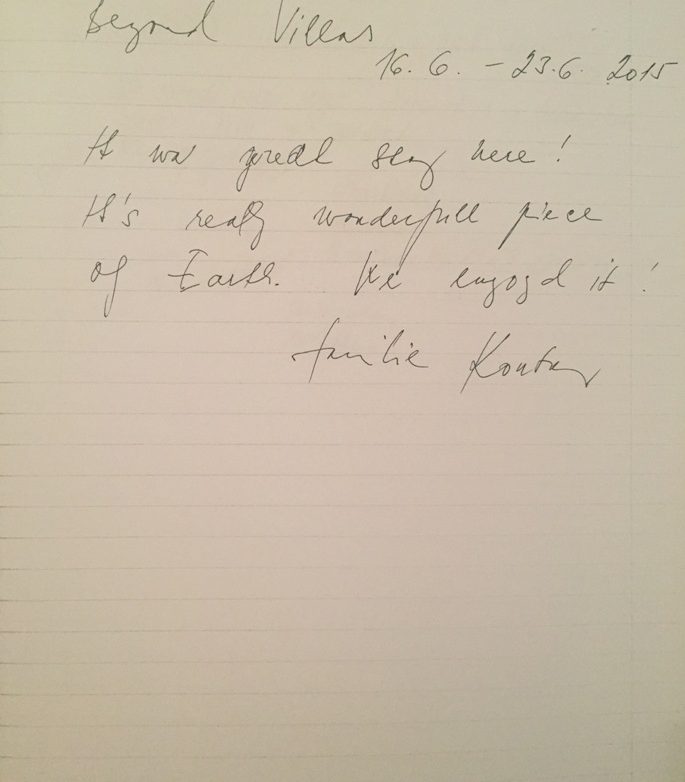 Beyond Villas
16. 6. - 23.6. 2015
It was great stay here!
It's really wonderfull piece
of Earth. We enyoyd it!
Familie